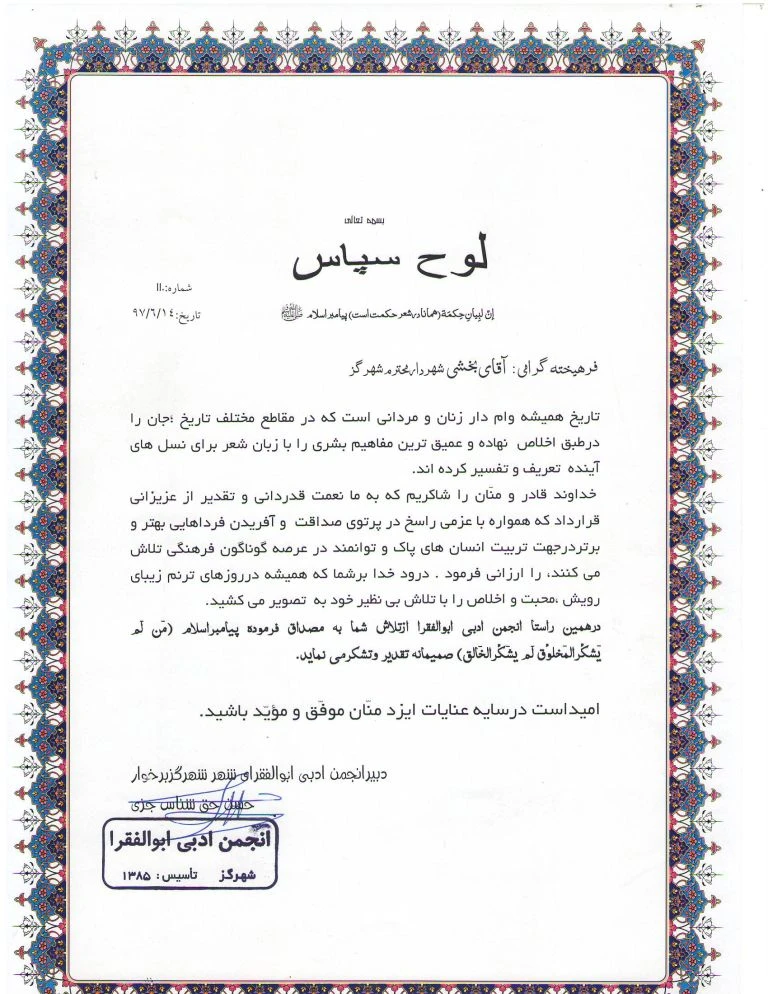 بسمه تعالی
لوح سپاس
شماره: ۱۱۰
تاریخ: ۹۷/۶/۱۴
إنّ لبیانِ حِکمَة (همانا در شعر حکمت است) پیامبر اسلام ﷺ
فرهیخته گرامی: آقای بخشی شهردار محترم شهر گز
تاریخ همیشه وام دار زنان و مردانی است که در مقاطع مختلف تاریخ ؛جان را
درطبق اخلاص نهاده و عمیق ترین مفاهیم بشری را با زبان شعر برای نسل های
آینده تعریف و تفسیر کرده اند.
خداوند قادر و منّان را شاکریم که به ما نعمت قدردانی و تقدیر از عزیزانی
قرارداد که همواره با عزمی راسخ در پرتوی صداقت و آفریدن فرداهایی بهتر و
برتردرجهت تربیت انسان های پاک و توانمند در عرصه گوناگون فرهنگی تلاش
می کنند، را ارزانی فرمود . درود خدا برشما که همیشه درروزهای ترنم زیبای
رویش ،محبت و اخلاص را با تلاش بی نظیر خود به تصویر می کشید.
درهمین راستا انجمن ادبی ابوالفقرا ازتلاش شما به مصداق فرموده پیامبراسلام (مَن لَم
یَشکُرالمَخلوُق لَم یشکُرالخالق) صمیمانه تقدیر وتشکرمی نماید.
امیداست درسایه عنایات ایزد منّان موفّق و مؤیّد باشید.
دبیرانجمن ادبی ابوالفقرای شهر شهرگزبرخوار
حسن حق شناس جزی
انجمن ادبی ابوالفقرا
شهرگز تاسیس: ۱۳۸۵